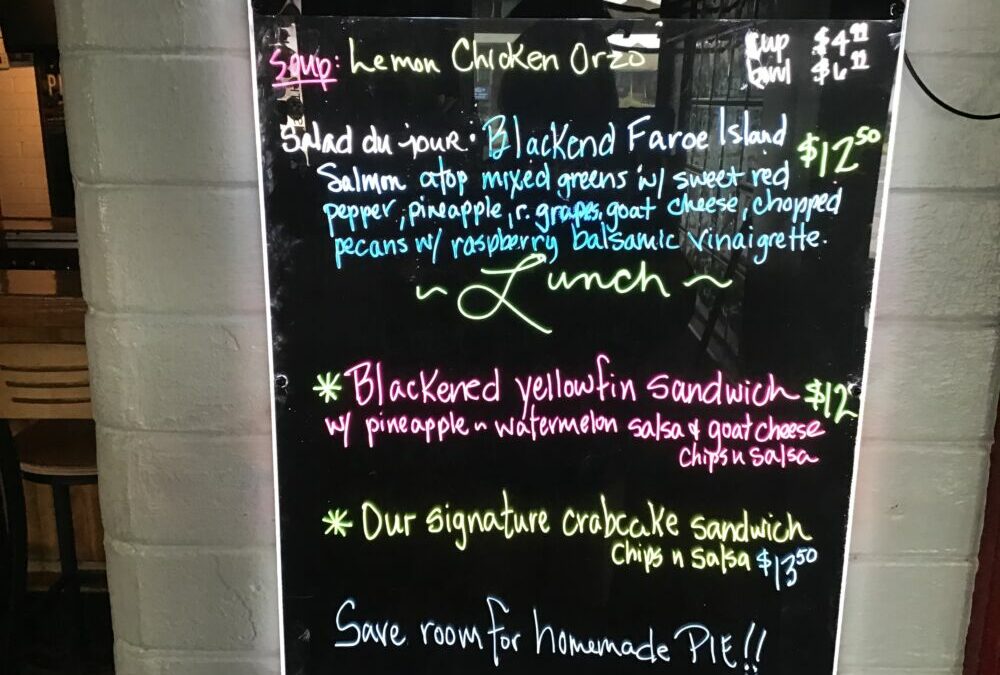 Soup: Lemon Chicken Orzo
cup $4.99
bowl $6.99
Salad du jour: Blackend Faroe Island $12.50
Salmon atop mixed greens w/ sweet red
pepper, pineapple, r. grapes, goat cheese, chopped
pecans w/ raspberry balsamic vinaigrette.
~ Lunch ~
* Blackened yellowfin sandwich $12
w/ pineapple ~ watermelon salsa & goat cheese
chips n salsa
* Our signature crabcake sandwich
chips n salsa $13.50
Save room for homemade PIE!!